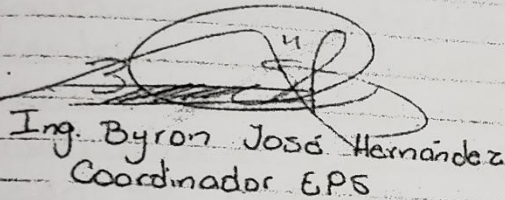 Ing. Byron José Hernández
Coordinador EPS